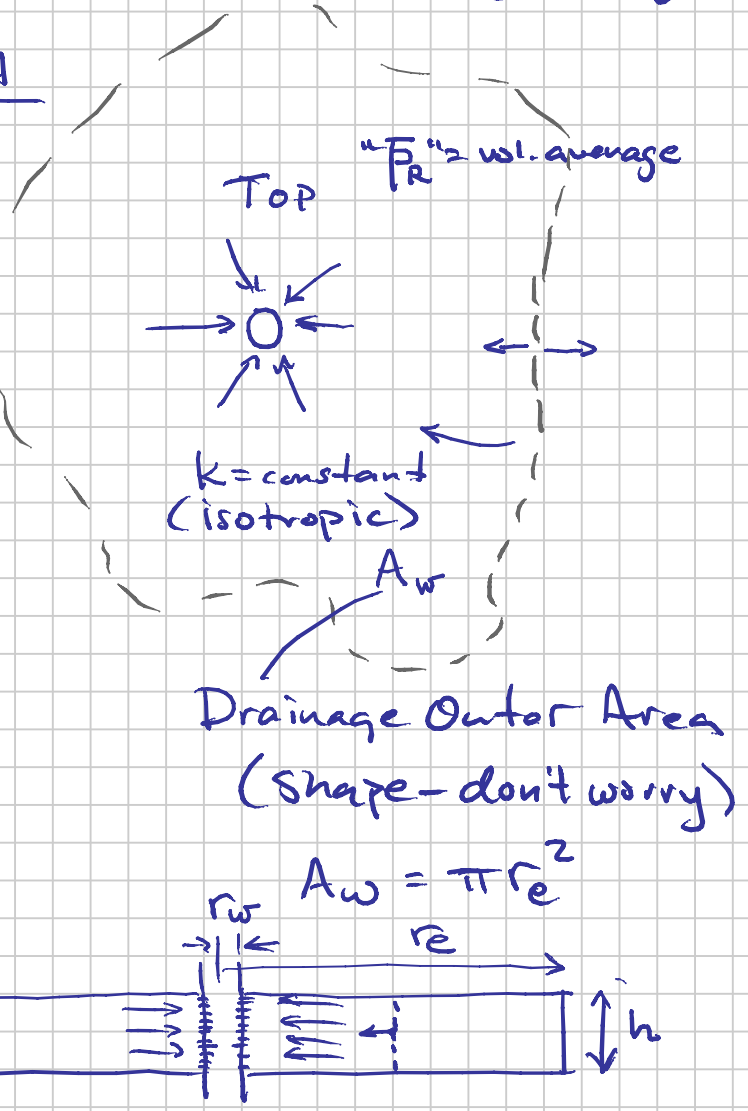 "p̅_R" = vol. average
TOP
k = constant
(isotropic)
A_w
Drainage Outer Area
(shape – don't worry)
A_w = πr_e²
r_w
r_e
h